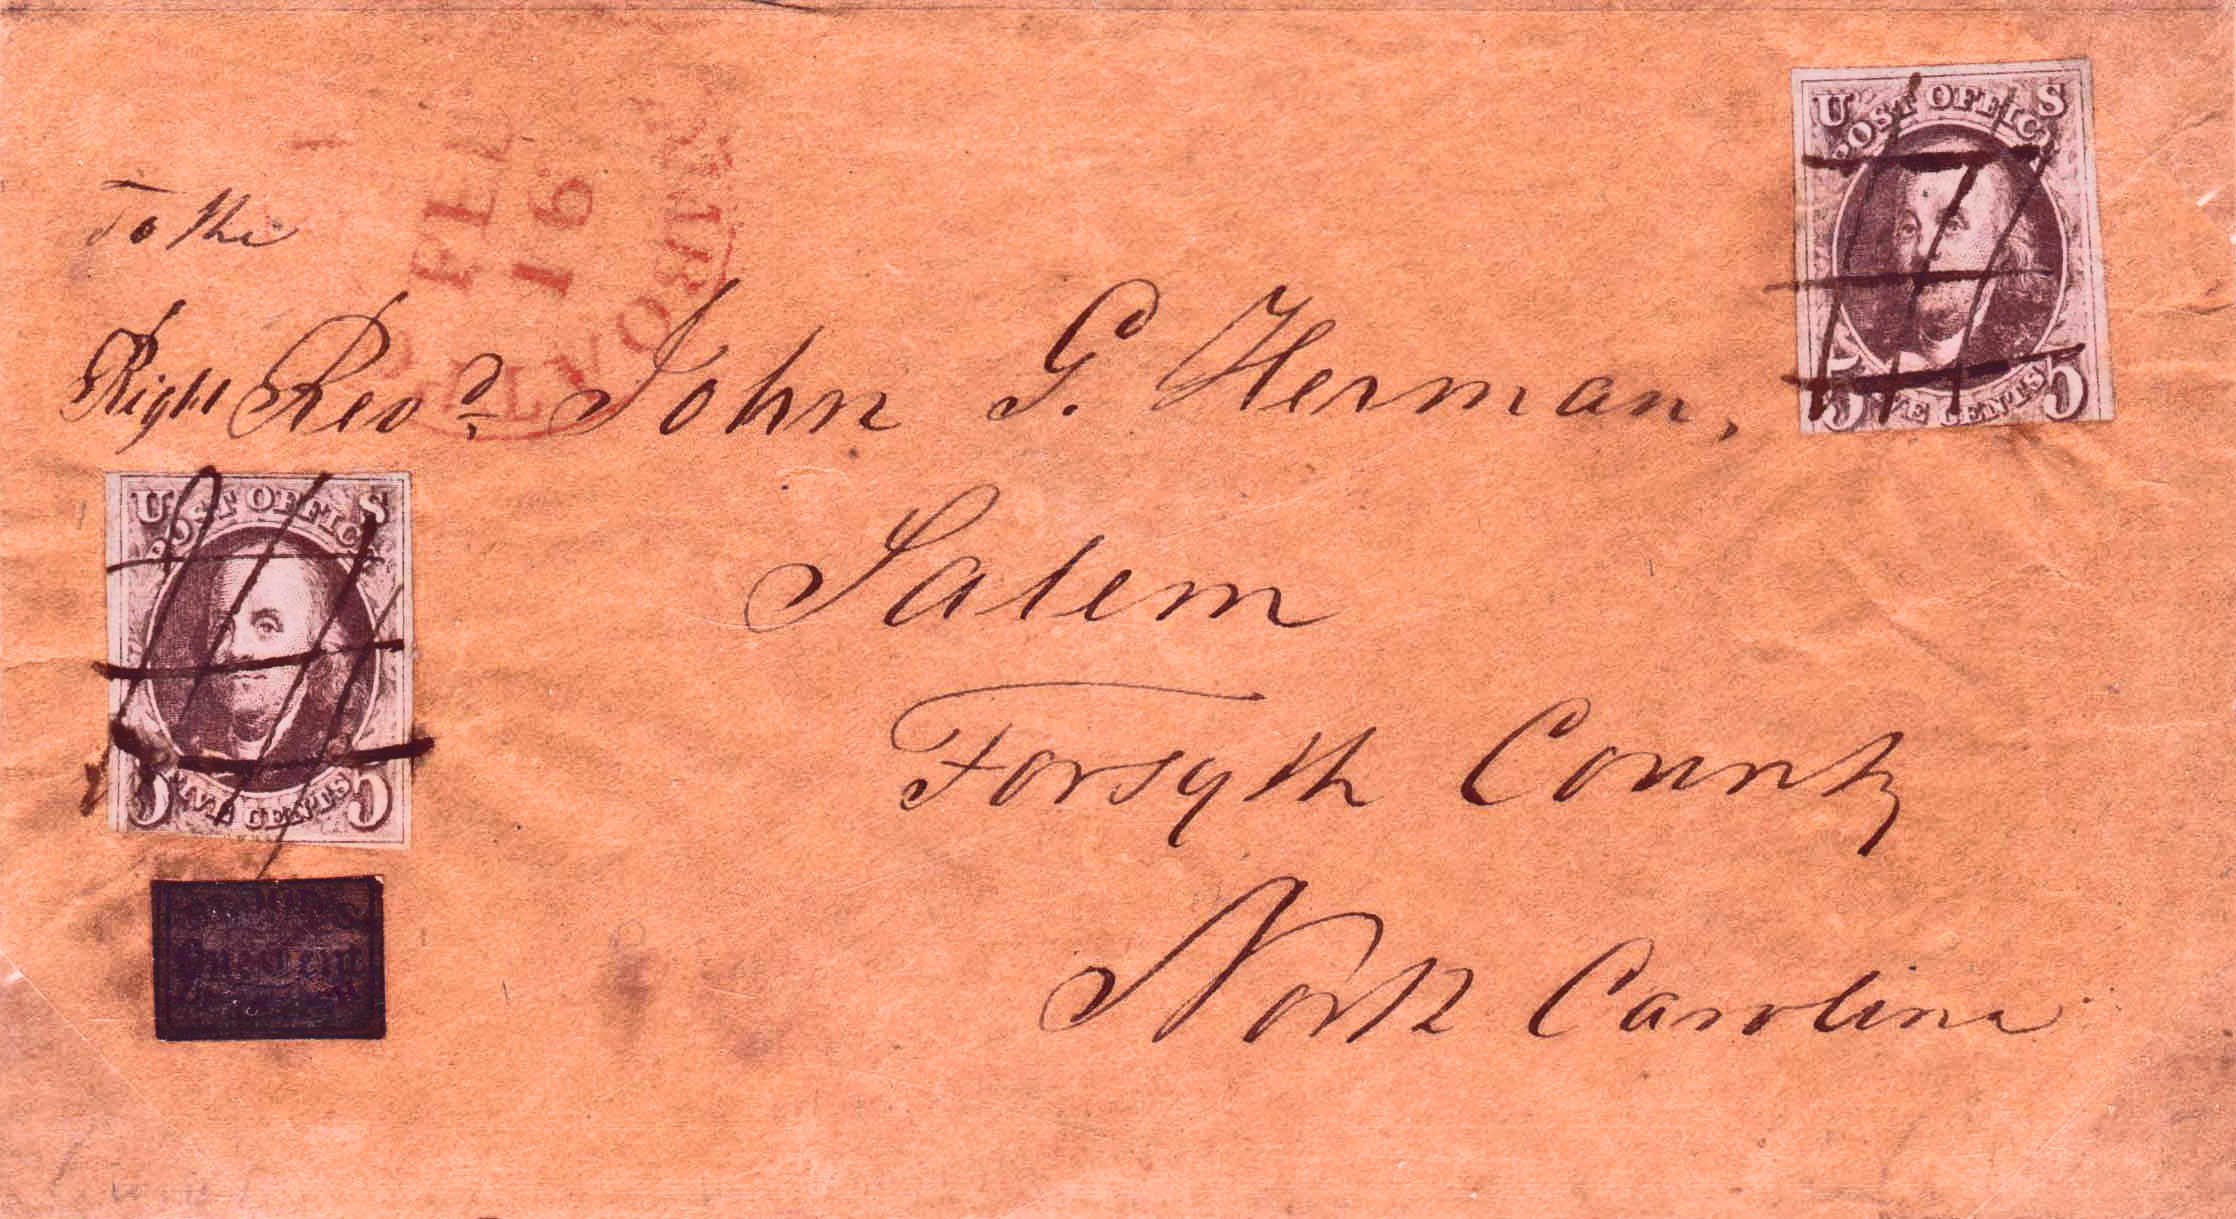 To the
Right Revd. John G. Herman,
Salem
Forsyth County
North Carolina
FEB
16
U S
POST OFFICE
5 FIVE CENTS 5
U S
POST OFFICE
5 FIVE CENTS 5
One Cent